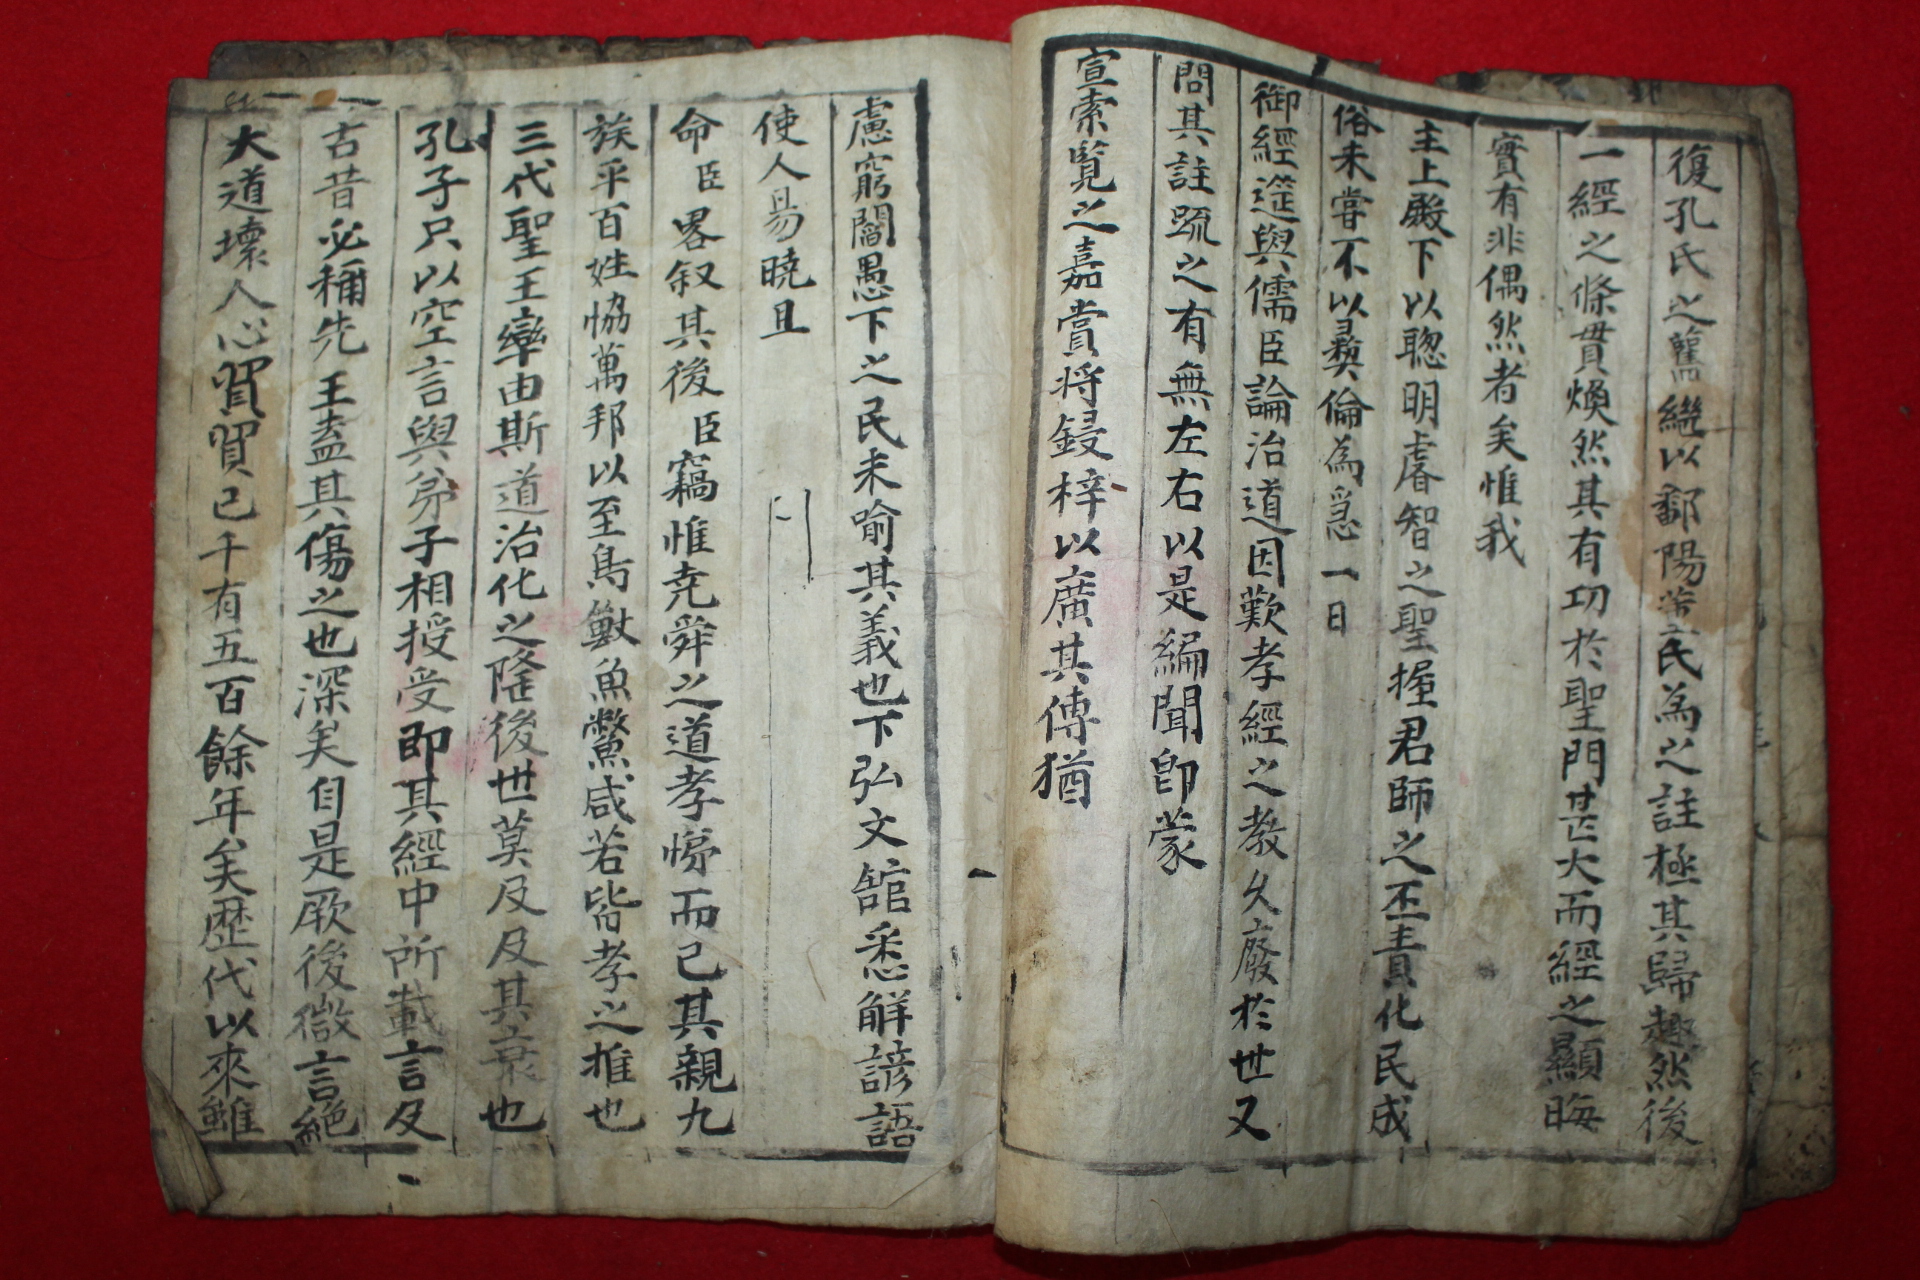 復孔氏之舊繼以鄱陽董氏為之註極其歸趣然後
一經之條貫煥然其有功於聖門甚大而經之顯晦
實有非偶然者矣惟我
主上殿下以聰明睿智之聖握君師之丕責化民成
俗未嘗不以彛倫為急一日
御經筵與儒臣論治道因歎孝經之教久廢於世又
問其註疏之有無左右以是編聞卽蒙
宣索覽之嘉賞將鋟梓以廣其傳猶
慮窮閻愚下之民未喻其義也下弘文舘悉解諺語
使人易曉且
命臣畧叙其後臣竊惟尭舜之道孝悌而已其親九
族平百姓恊萬邦以至鳥獸魚鱉咸若皆孝之推也
三代聖王率由斯道治化之隆後世莫及及其衰也
孔子只以空言與弟子相授受即其經中所載言及
古昔必稱先王盖其傷之也深矣自是厥後微言絶
大道壞人心貿貿已千有五百餘年矣歷代以來雖